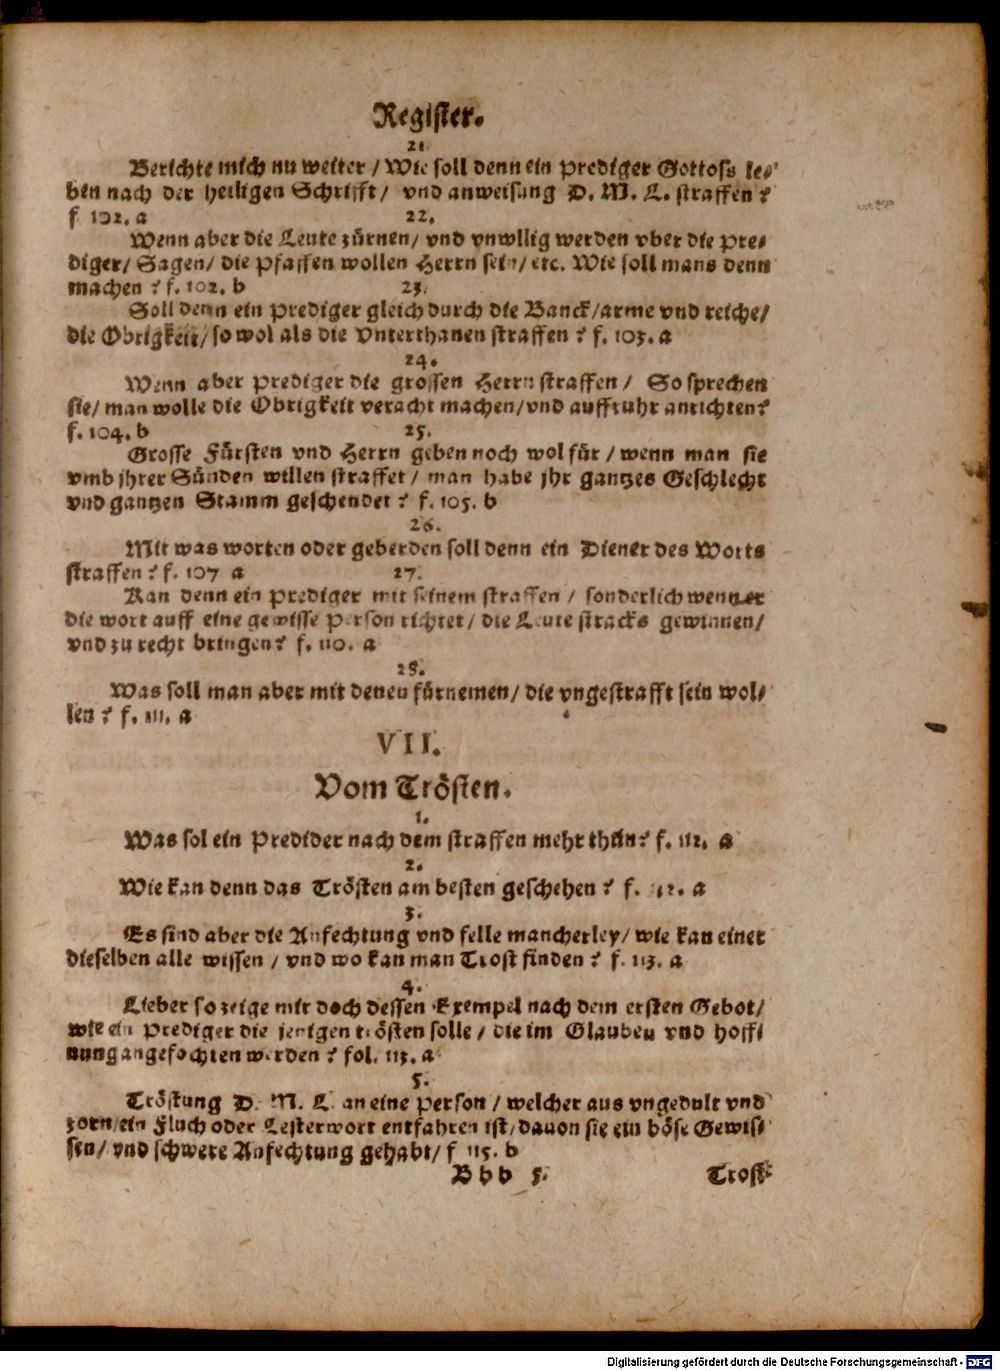 Register.
21
Berichte mich nu weiter / Wie soll denn ein Prediger Gottoss le⸗
ben nach der heiligen Schrifft / vnd anweisung D. M. L. straffen?
f 102. a
22.
Wenn aber die Leute zürnen / vnd vnwllig werden vber die Pre⸗
diger / Sagen / die Pfaffen wollen Herrn sein / etc. Wie soll mans denn
machen? f. 102. b
23.
Soll denn ein Prediger gleich durch die Banck / arme vnd reiche /
die Obrigkeit / so wol als die Vnterthanen straffen? f. 103. a
24.
Wenn aber Prediger die grossen Herrn straffen / So sprechen
sie / man wolle die Obrigkeit veracht machen / vnd auffruhr anrichten?
f. 104. b
25.
Grosse Fürsten vnd Herrn geben noch wol für / wenn man sie
vmb jhrer Sünden willen straffet / man habe jhr gantzes Geschlecht
vnd gantzen Stamm geschendet? f. 105. b
26.
Mit was worten oder geberden soll denn ein Diener des Worts
straffen? f. 107 a
27.
Kan denn ein Prediger mit seinem straffen / sonderlich wenn er
die wort auff eine gewisse Person richtet / die Leute stracks gewinnen /
vnd zu recht bringen? f. 110. a
28.
Was soll man aber mit denen fürnemen / die vngestrafft sein wol⸗
len? f. 111. a
VII.
Vom Trösten.
1.
Was sol ein Predider nach dem straffen mehr thün? f. 112. a
2.
Wie kan denn das Trösten am besten geschehen? f. 112. a
3.
Es sind aber die Anfechtung vnd felle mancherley / wie kan einer
dieselben alle wissen / vnd wo kan man Trost finden? f. 113. a
4.
Lieber so zeige mir doch dessen Exempel nach dem ersten Gebot /
wie ein Prediger die jenigen trösten solle / die im Glauben vnd hoff⸗
nung angefochten werden? fol. 113. a
5.
Tröstung D. M. L. an eine Person / welcher aus vngedult vnd
zorn / ein Fluch oder Lesterwort entfahren ist / dauon sie ein böse Gewis⸗
sen / vnd schwere Anfechtung gehabt / f 115. b
Bbb 5.
Trost
Digitalisierung gefördert durch die Deutsche Forschungsgemeinschaft - DFG